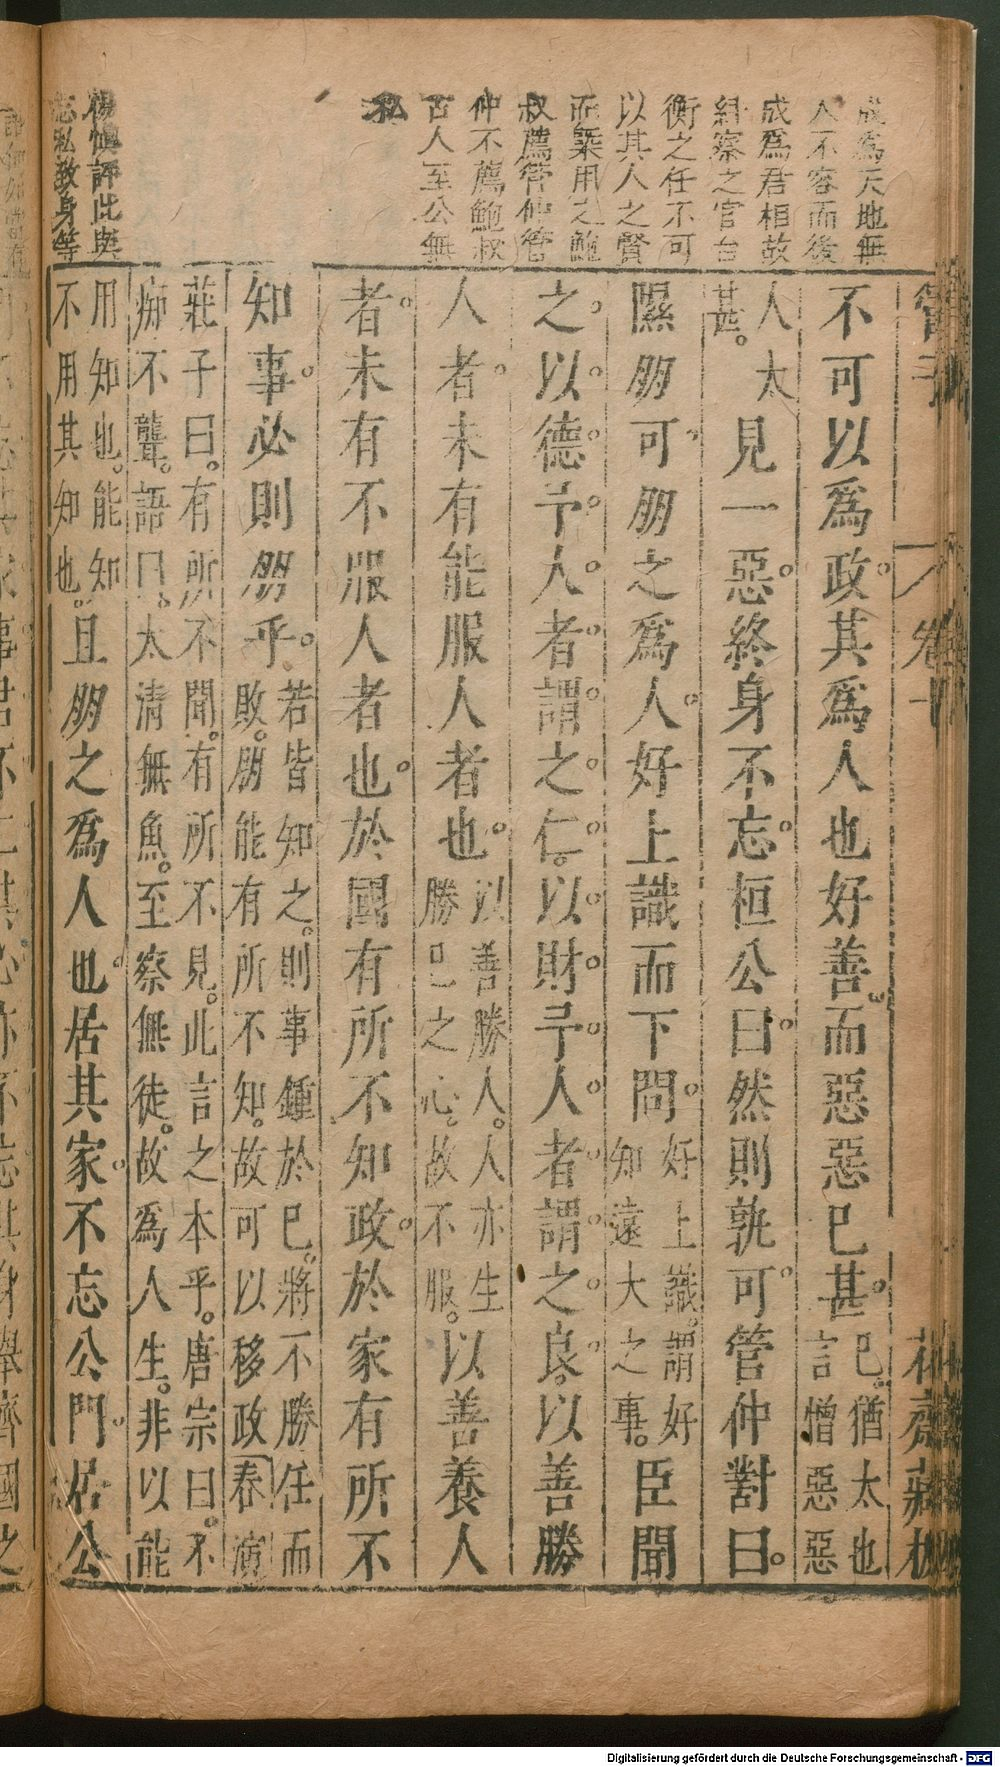 成爲天地無
人不容而後
成爲君相故
紂察之官台
衡之任不可
以其人之賢
而槩用之鮑
叔薦管仲管
仲不薦鮑叔
古人至公無
私
楊慎評此與
忘私教身等
管子 卷十 花齋藏板
不可以爲政。其爲人也好善。而惡惡已甚。已。猶太也言憎惡惡
人太甚。見一惡。終身不忘。桓公曰。然則孰可。管仲對曰。
隰朋可。朋之爲人。好上識而下問。好上識。謂好知遠大之事。臣聞
之。以。德。予。人。者。謂。之。仁。以。財。予。人。者。謂。之。良。以善勝
人者。未有能服人者也。以善勝人。人亦生勝己之心。故不服。以善養人
者。未有不服人者也。於國有所不知政。於家有所不
知事。必則朋乎。若皆知之。則事鍾於己。將不勝任而敗。朋能有所不知。故可以移政春演
莊子曰。有所不聞。有所不見。此言之本乎。唐宗曰。不痴不聾。語曰。太清無魚。至察無徒。故爲人生。非以能
用知也。能知不用其知也。且朋之爲人也。居其家。不忘公門。居公
Digitalisierung gefördert durch die Deutsche Forschungsgemeinschaft - DFG